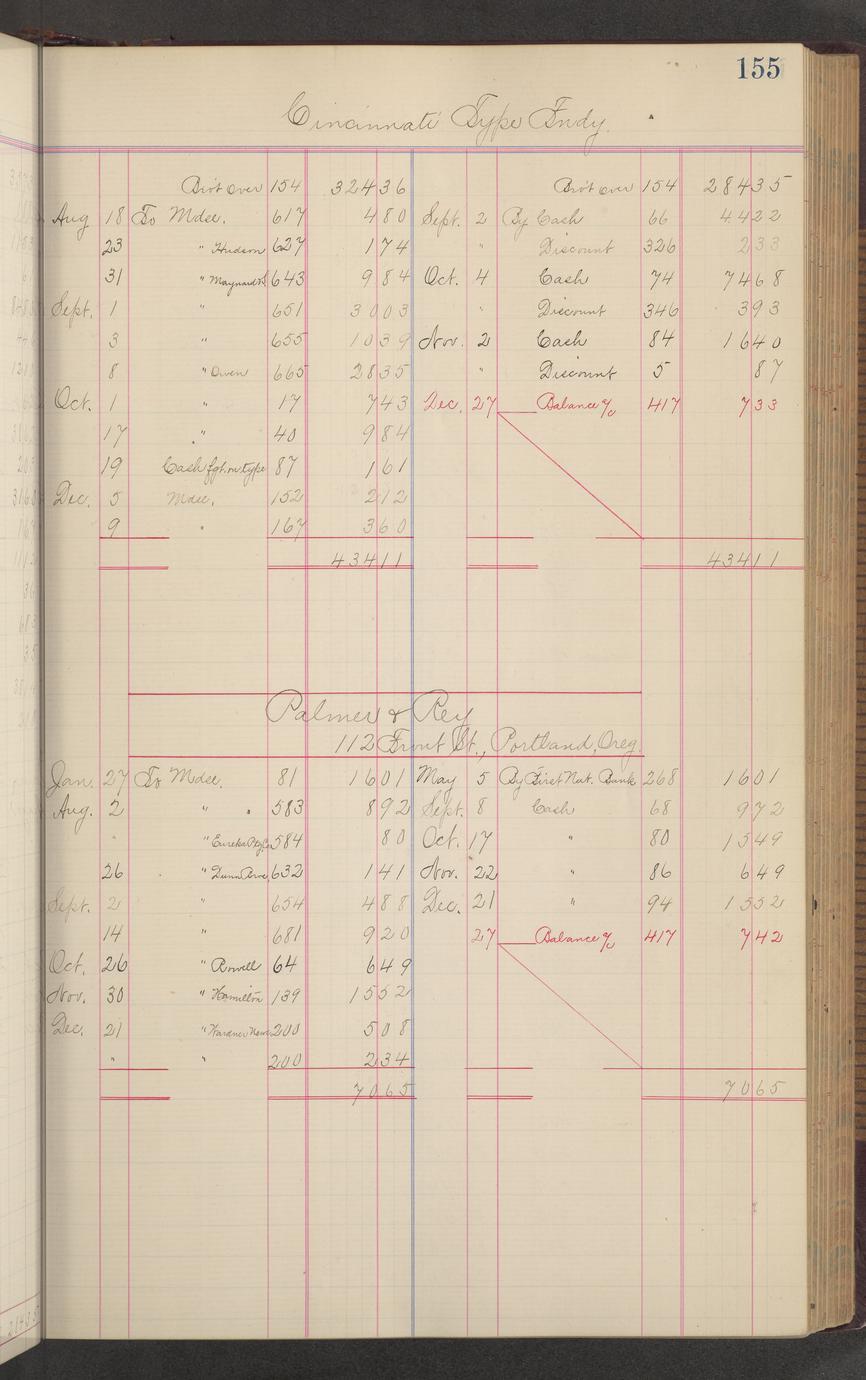 155
Cincinnati Type Fndy.
Bro't over 154 324 36 Bro't over 154 284 35
Aug 18 To Mdse. 617 4 80 Sept. 2 By Cash 66 44 22
23 " Hudson 627 1 74 " Discount 326 2 33
31 " 643 9 84 Oct. 4 Cash 74 74 68
Sept. 1 " 651 30 03 " Discount 346 3 93
3 " 655 10 39 Nov. 2 Cash 84 16 40
8 " Owen 665 28 35 " Discount 5 87
Oct. 1 " 17 7 43 Dec. 27 Balance a/c 417 7 33
17 " 40 9 84
19 Cash fgt. on type 87 1 61
Dec. 5 Mdse. 152 2 12
9 " 167 3 60
434 11 434 11
Palmer & Rey
112 Front St., Portland, Oreg.
Jan. 27 To Mdse. 81 16 01 May 5 By First Nat. Bank 268 16 01
Aug. 2 " " 583 8 92 Sept. 8 Cash 68 9 72
" " Eureka 584 80 Oct. 17 " 80 15 49
26 " Dunn 632 1 41 Nov. 22 " 86 6 49
Sept. 2 " 654 4 88 Dec. 21 " 94 15 52
14 " 681 9 20 27 Balance a/c 417 7 42
Oct. 26 " Rowell 64 6 49
Nov. 30 " Hamilton 139 15 52
Dec. 21 " Wardner News 200 5 08
" " 200 2 34
70 65 70 65